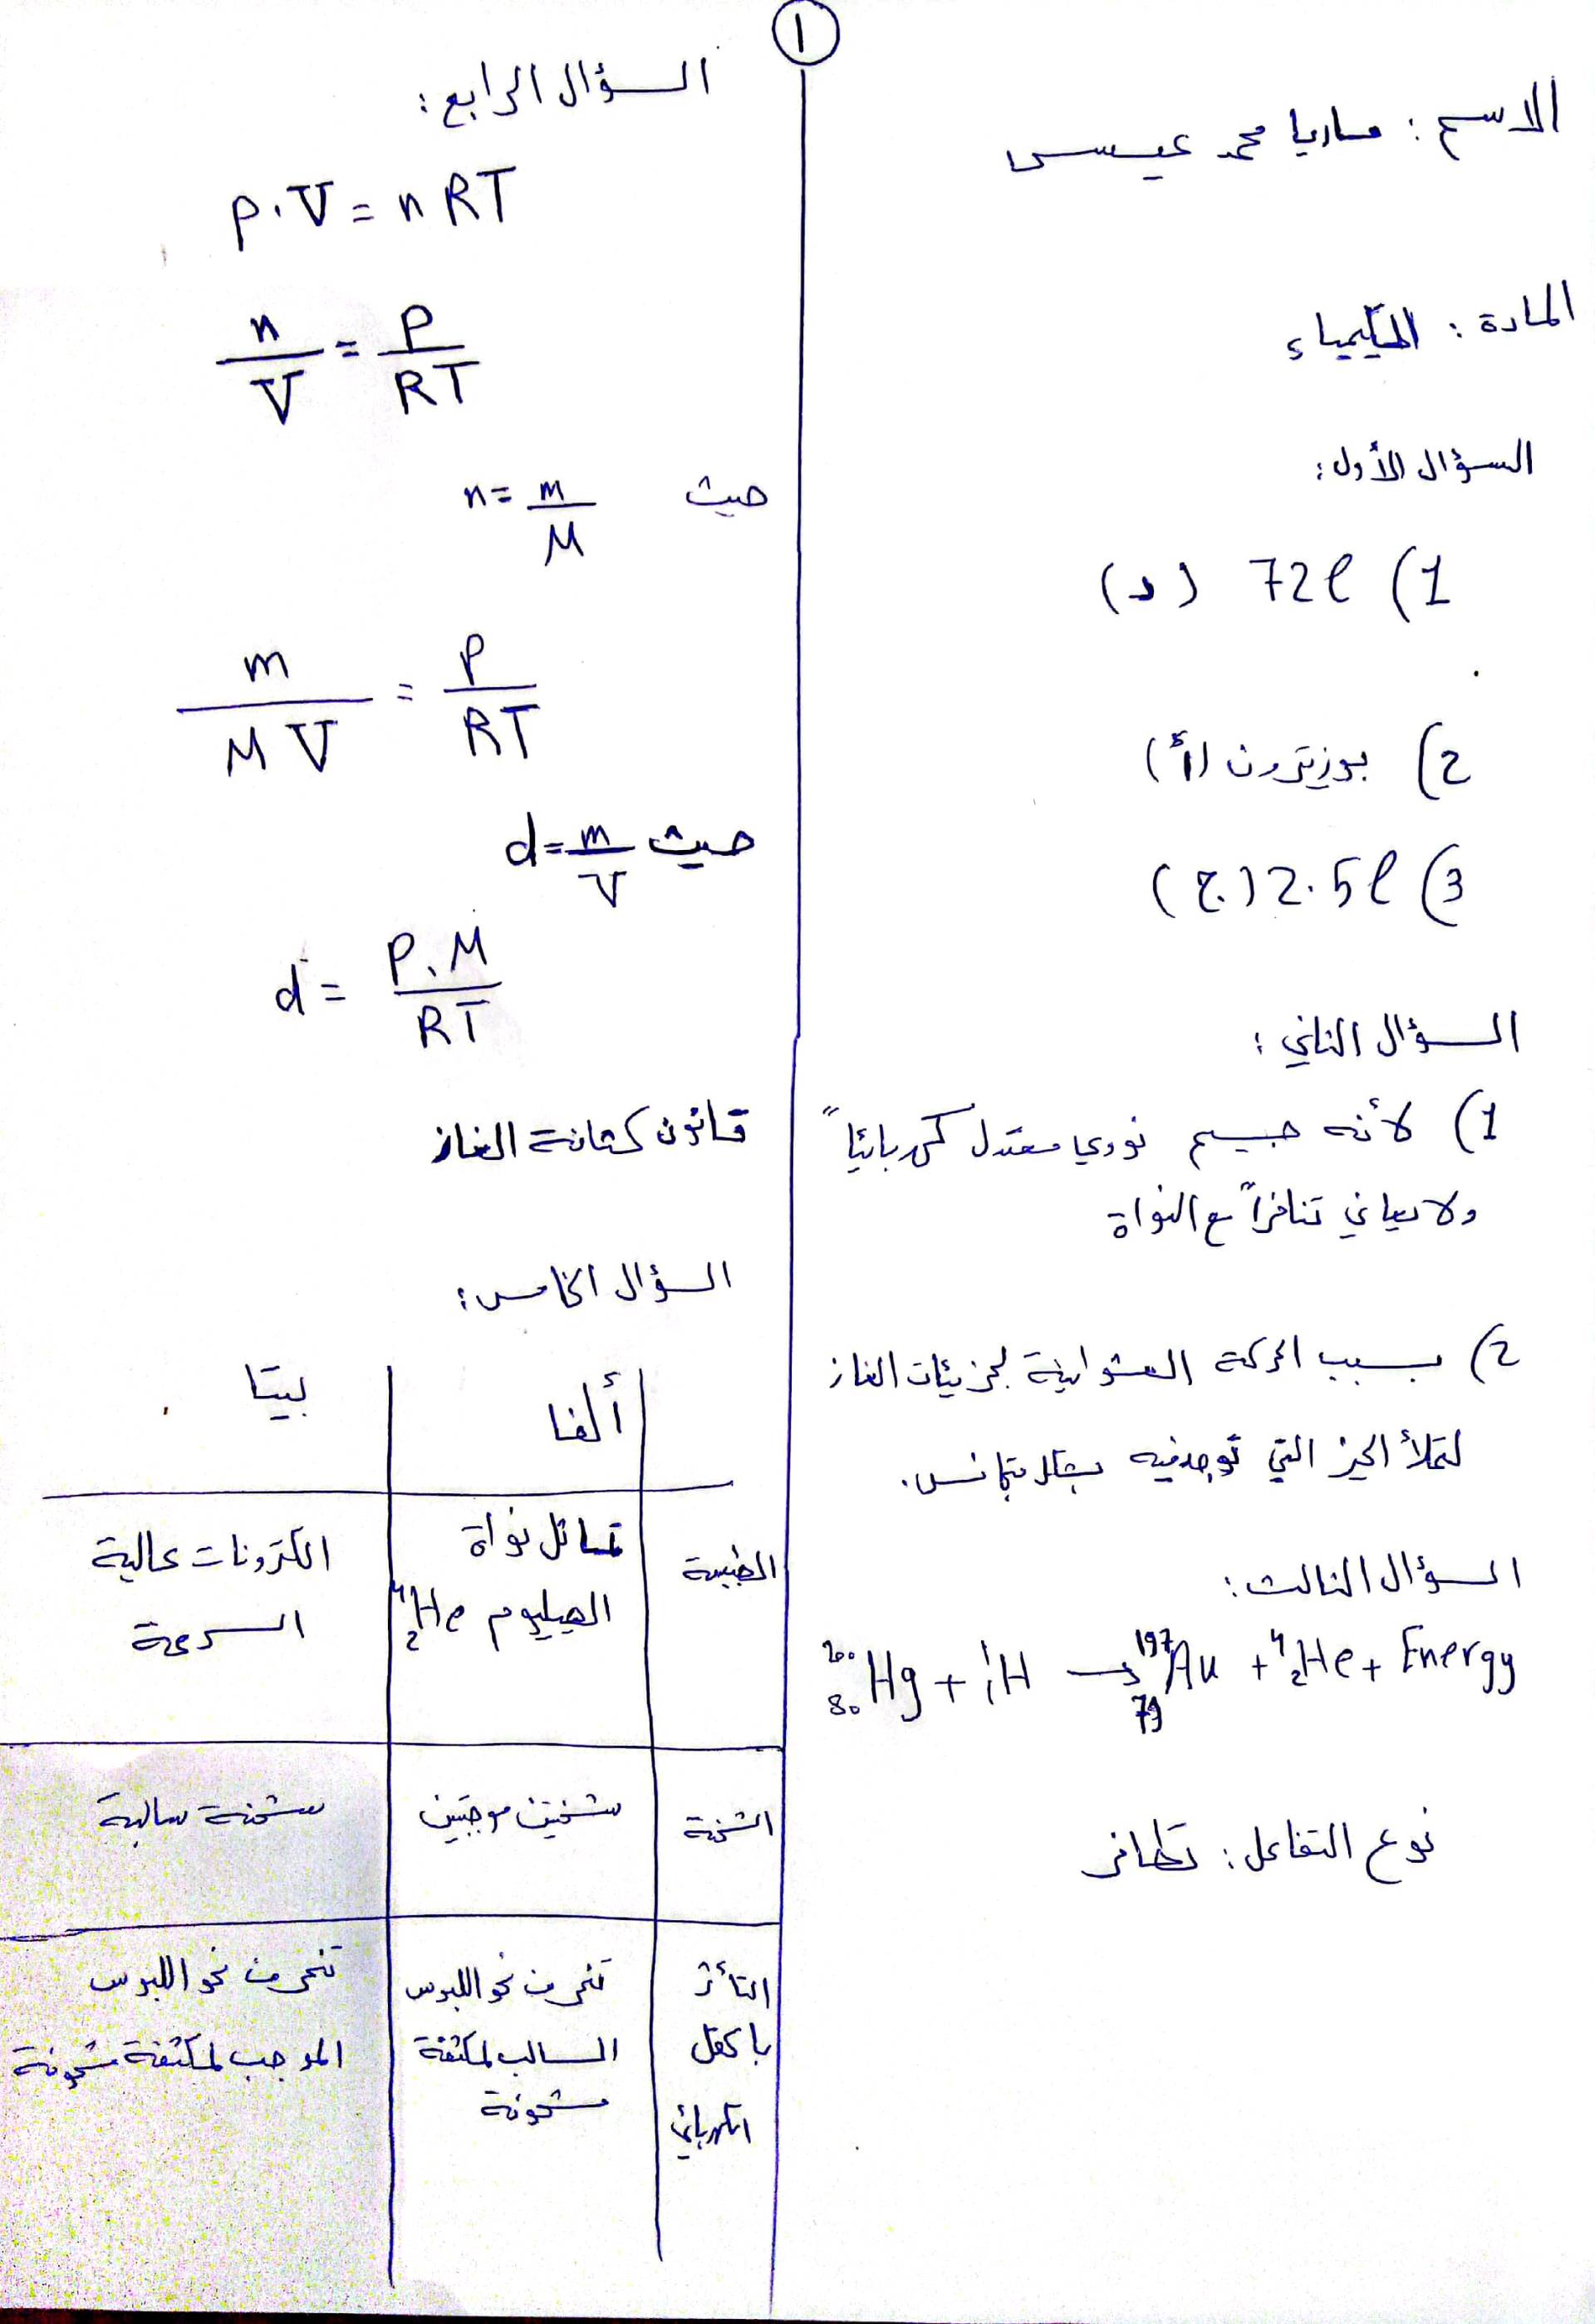 ١
الاسم : ماريا محمد عيسى
المادة : الكيمياء
السؤال الأول :
1) 72l (د)
2) بوزيترون (أ)
3) 2.5l (ج)
السؤال الثاني :
1) لأنه جسيم نووي معتدل كهربائياً
ولا يعاني تنافراً مع النواة
2) بسبب الحركة العشوائية لجزيئات الغاز
لتملأ الحيز التي توجد فيه بشكل متجانس.
السؤال الثالث :
²⁰⁰₈₀Hg + ¹₁H → ¹⁹⁷₇₉Au + ⁴₂He + Energy
نوع التفاعل : تطافر
السؤال الرابع :
P.V = nRT
n/V = P/RT
حيث n = m/M
m/MV = P/RT
حيث d = m/V
d = P.M/RT
قانون كثافة الغاز
السؤال الخامس :
ألفا بيتا
الطبيعة تماثل نواة الكترونات عالية
الهيليوم ⁴₂He السرعة
الشحنة شحنتين موجبتين شحنة سالبة
التأثر تنحرف نحو اللبوس تنحرف نحو اللبوس
بالحقل السالب لمكثفة الموجب لمكثفة مشحونة
الكهربائي مشحونة